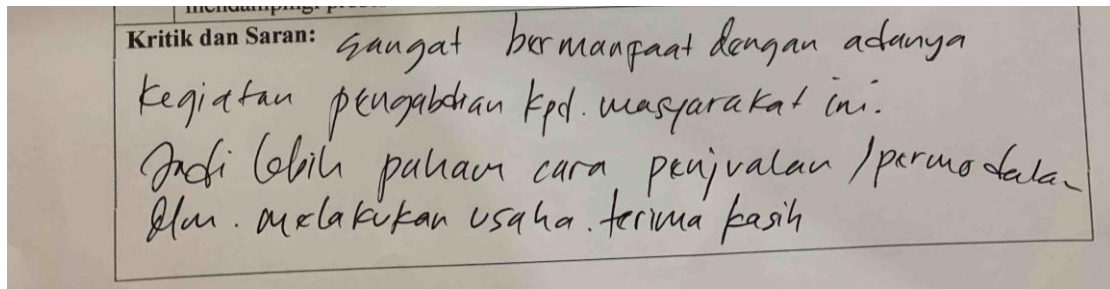 mendampingi
Kritik dan Saran: sangat bermanfaat dengan adanya
kegiatan pengabdian kpd. masyarakat ini.
Jadi lebih paham cara penjualan / permodalan
dlm. melakukan usaha. terima kasih